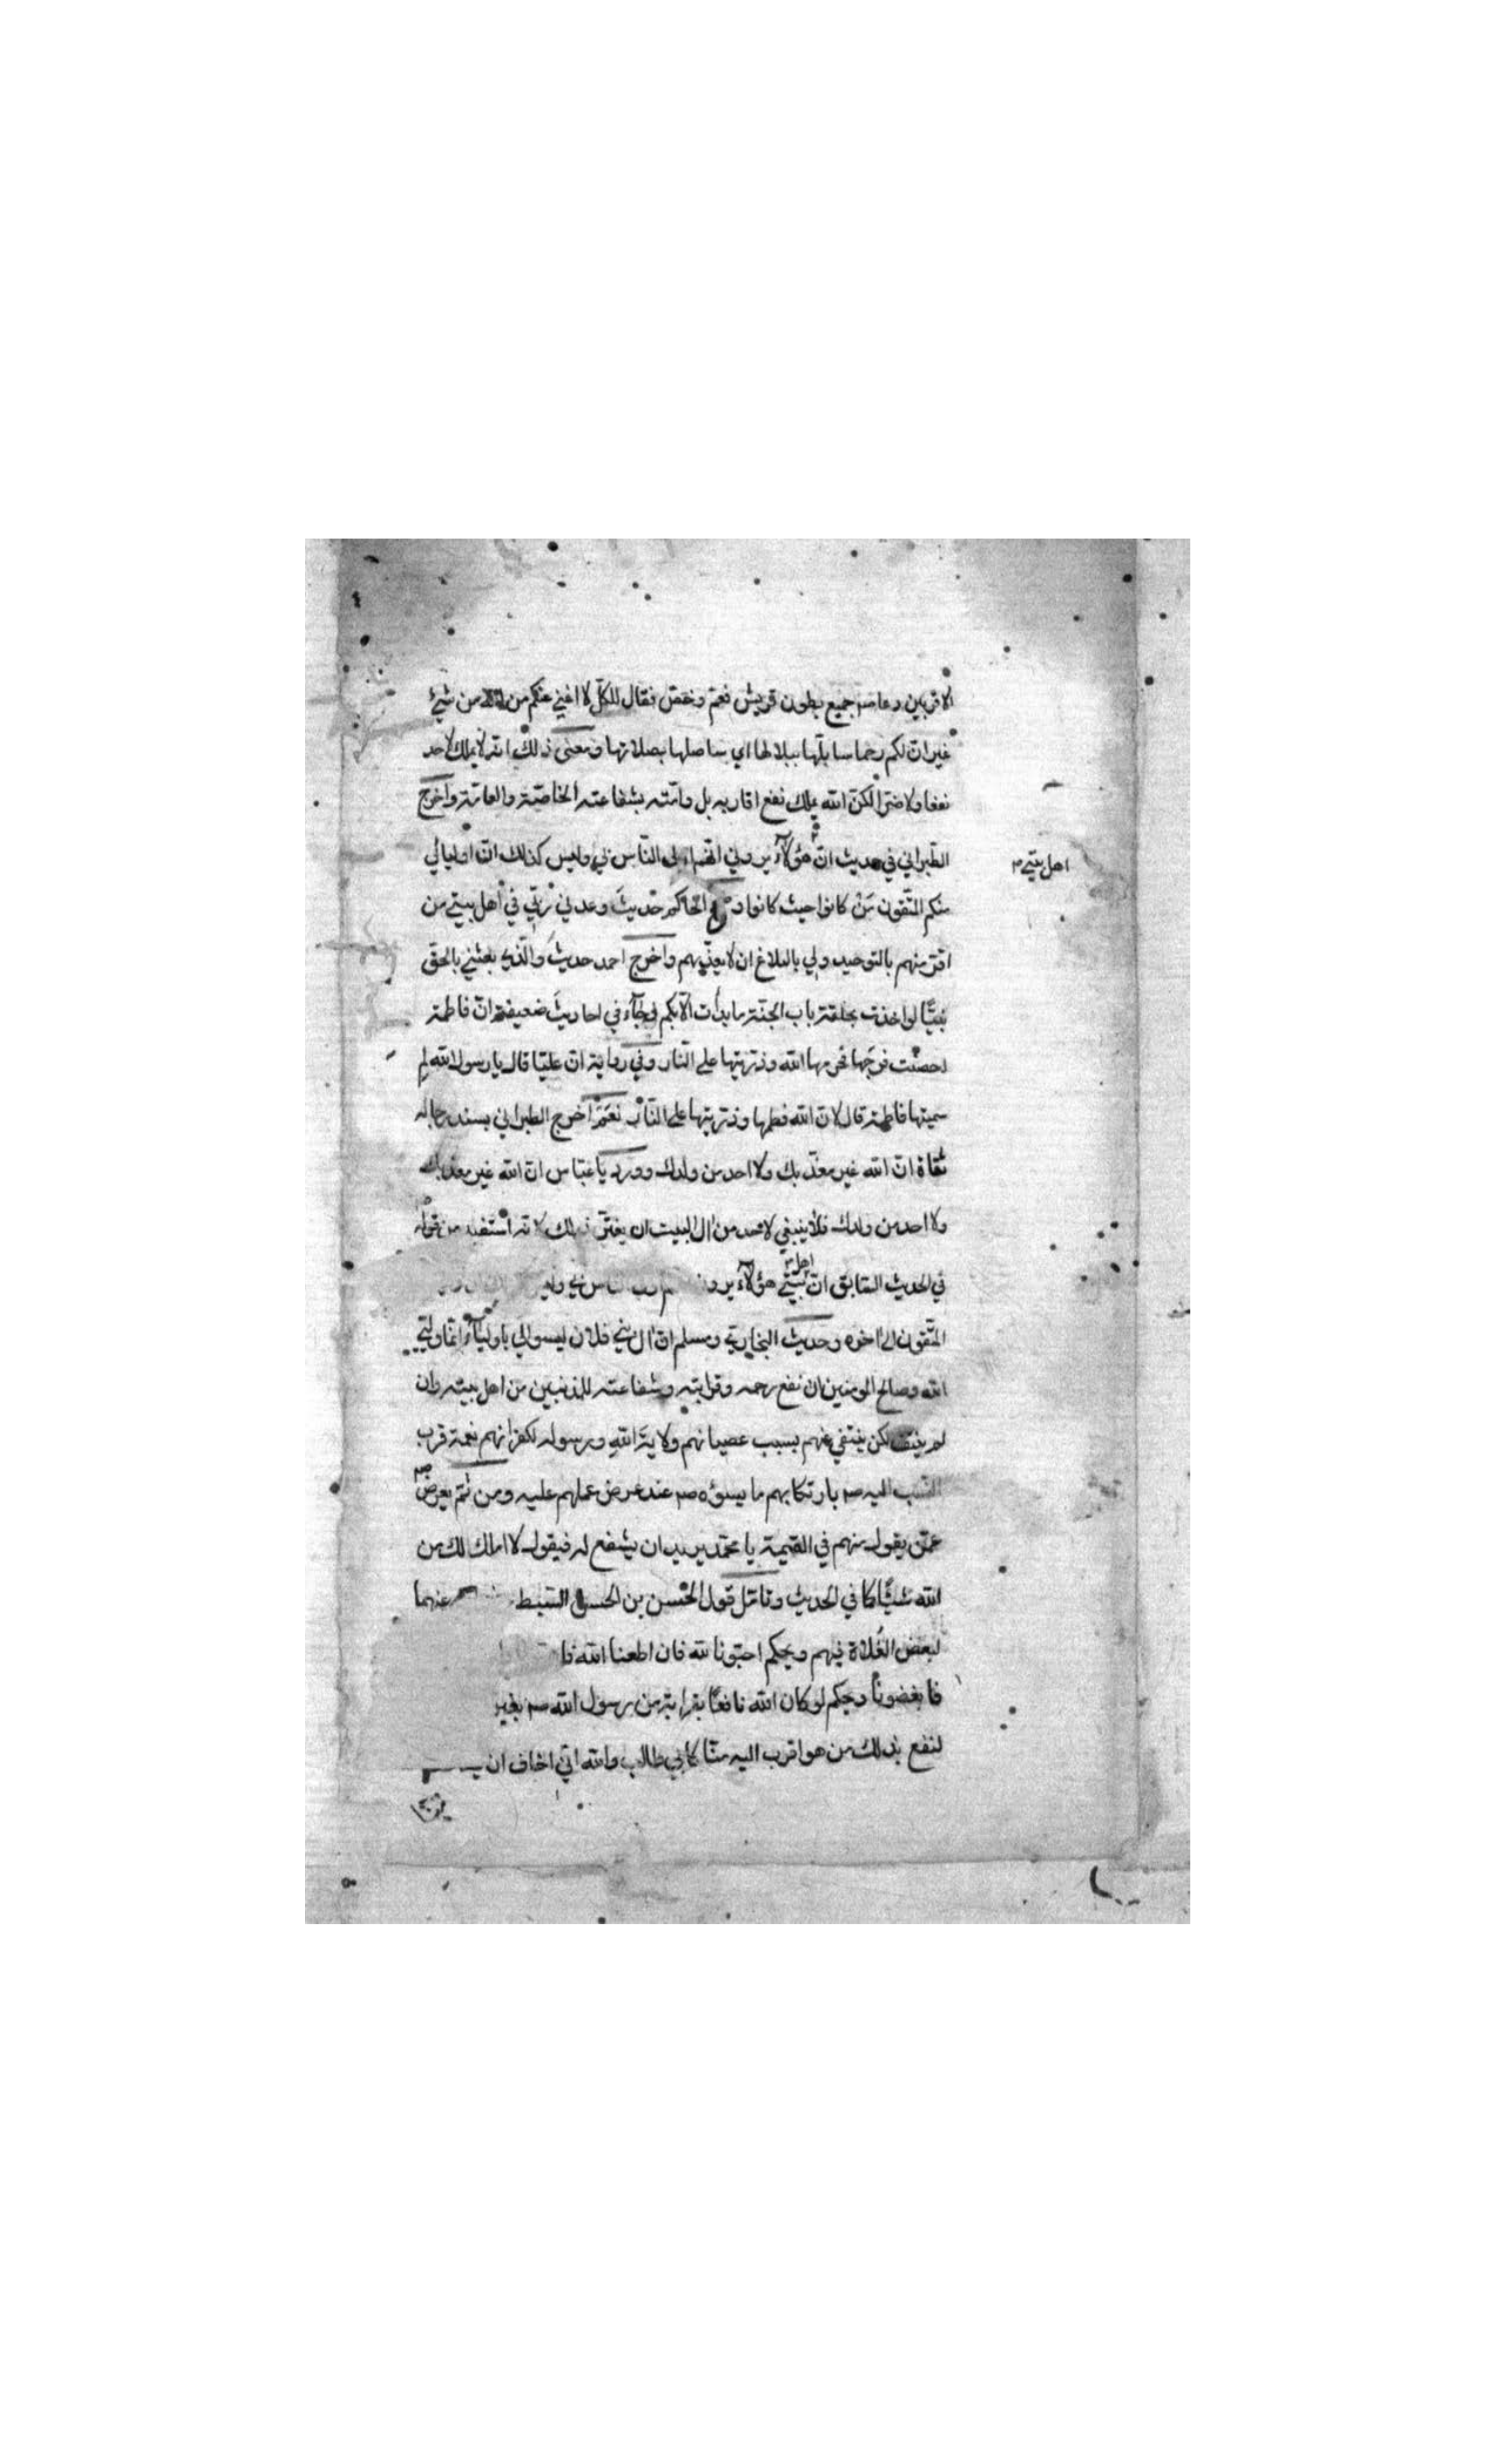 الاقربين دعا صم جميع بطون قريش فعم وخصّ فقال للكلّ لا اغني عنكم من الله من شيئ
غير ان لكم رحما سابلّها ببلالها اي ساصلها بصلاتها ومعنى ذلك انه لا يملك لاحد
نفعا ولا ضرّا لكنّ الله يملك نفع اقاربه بل وامّته بشفاعته الخاصّة والعامّة واخرج
الطّبراني في حديث انّ هؤلآء يرون انّهم اولى النّاس بي وليس كذلك انّ اوليائي
اهل بيتي
منكم المتّقون مَنْ كانوا حيث كانوا الحاكم حديث وعدني ربّي في اهل بيتي من
اقرّ منهم بالتوحيد ولي بالبلاغ ان لا يعذّبهم واخرج احمد حديث والّذي بعثني بالحق
نبيًّا لو اخذت بحلقة باب الجنّة ما بدأت الّا بكم وجآء في احاديث ضعيفة انّ فاطمة
احصنت فرجها فحرمها الله وذرّيتها على النّار وفي رواية انّ عليّا قال يا رسول الله لِم
سميتها فاطمة قال لانّ الله فطمها وذرّيتها على النّار نعَمْ اخرج الطبراني بسند رجاله
ثقاة انّ الله غير معذّبك ولا احد من ولدك وورد يا عبّاس انّ الله غير معذبك
ولا احد من ولدك فلا ينبغي لاحد من ال البيت ان يغترّ بذلك لانّه استفيد من قوله
في الحديث السّابق انّ اهل بيتي هؤلآء يرون
المتّقون الى اخره وحديث البخاري ومسلم انّ ال بني فلان ليسوا لي باوليآء انّما وليّي
الله وصالح المومنين ان نفع رحمه وقرابته وشفاعته للمذنبين من اهل بيته وان
لم ينتف لكن ينتفي عنهم بسبب عصيانهم ولاية الله ورسوله لكفرانهم نعمة قرب
النّسب اليه صم بارتكابهم ما يسوؤه صم عند عرض عملهم عليه ومن ثمّ يعرض صم
عمّن يقول منهم في القيمة يا محمّد يريد ان يشفع له فيقول لا املك لك من
الله شيئًا كما في الحديث وتامّل قول الحسن بن الحسن السّبط عنهما
لبعض الغُلاة فيهم ويحكم احبّونا لله فان اطعنا الله فا
فابغضونا ويحكم لو كان الله نافعًا بقرابة من رسول الله صم بغير
لنفع بذلك من هو اقرب اليه منّا كابي طالب والله انّي اخاف ان